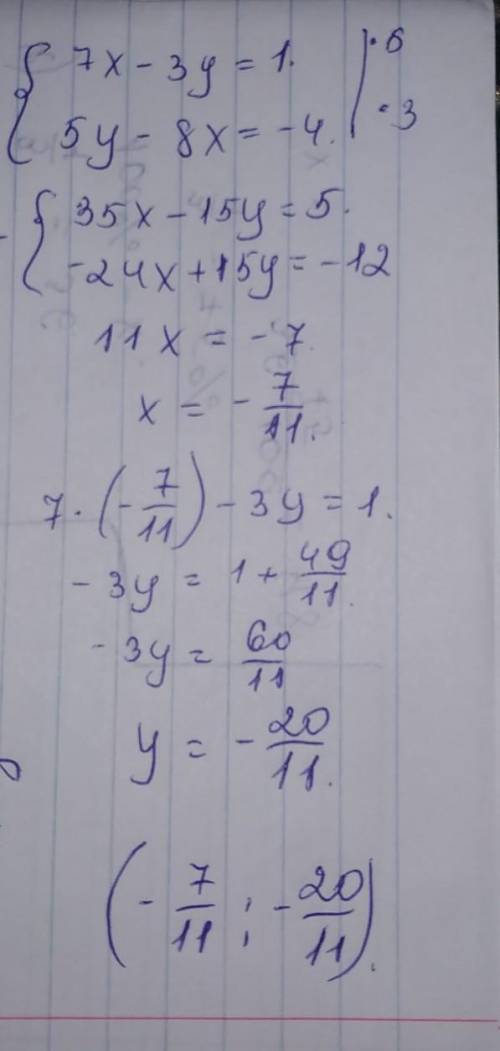 { 7x - 3y = 1. | · 6
5y - 8x = -4. | · 3
{ 35x - 15y = 5.
-24x + 15y = -12
11x = -7
x = - 7/11.
7 · (- 7/11) - 3y = 1.
-3y = 1 + 49/11.
-3y = 60/11
y = - 20/11.
(- 7/11 ; - 20/11).